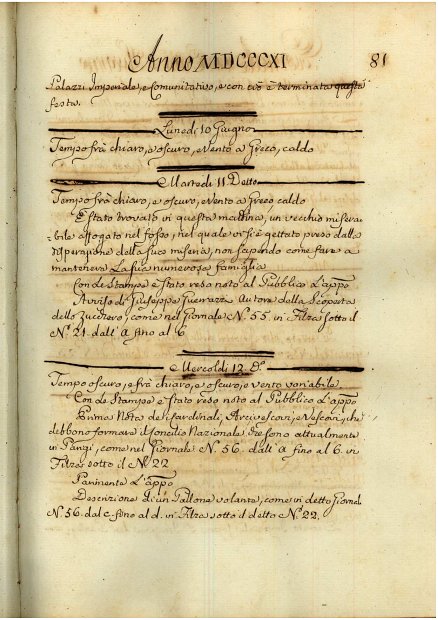 Anno MDCCCXI 81
Palazzi Imperiale, e Comunitativo, e con ciò è terminata questa
festa.
Lunedì 10 Giugno
Tempo frà chiaro, e oscuro, e Vento a Greco, caldo
Martedì 11 Detto
Tempo frà chiaro, e oscuro, e Vento a Greco caldo
È stato trovato in questa mattina, un vecchio misera-
-bile affogato nel fosso, nel quale vi si è gettato preso dalla
disperazione della sua miseria, non sapendo come fare a
mantenere la sua numerosa famiglia
Con le Stampe è stato reso noto al Pubblico L'app.o
Avviso di Giuseppe Guerrazzi Autore della Scoperta
dello Zucchero, come nel Giornale N.o 55. in Filza sotto il
N.o 21. dall' a fino al 6
Mercoldì 12 D.o
Tempo oscuro, e frà chiaro, e oscuro, e vento variabile
Con le Stampe è stato reso noto al Pubblico L'app.o
Prima Nota dei Cardinali, Arcivescovi, e Vescovi, che
debbono formare il Concilio Nazionale che sono attualmente
in Parigi, come nel Giornale N. 56. dall' a fino al 6. in
Filza sotto il N.o 22
Parimente L'app.o
Descrizione di un Pallone volante, come in detto Giornal.
N. 56. dal c. fino al d. in Filza sotto il detto N.o 22.